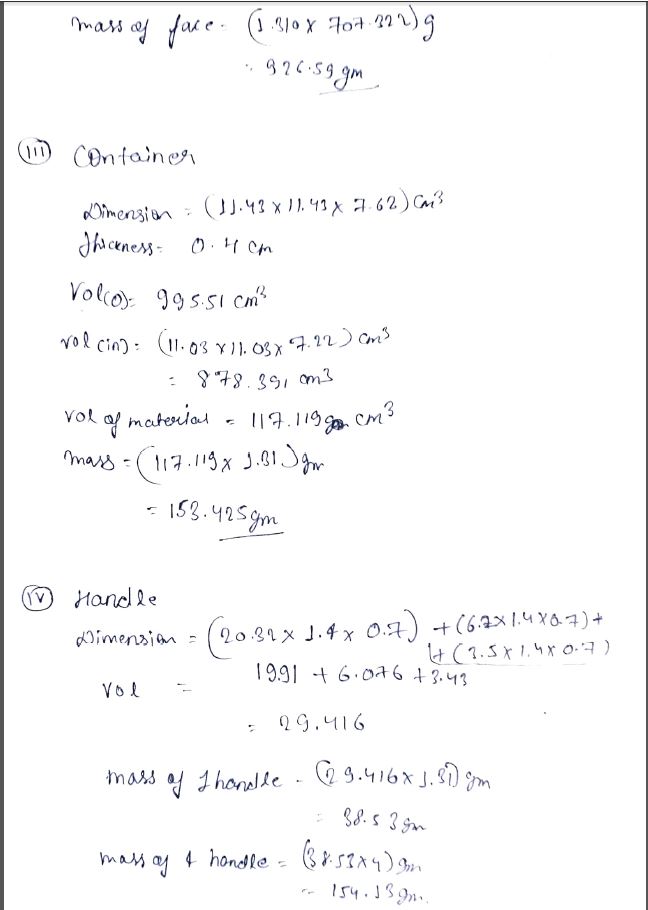 mass of face = (1.310 x 707.322)g
= 926.59 gm
(iii) Container
Dimension = (11.43 x 11.43 x 7.62) cm3
Thickness = 0.4 cm
Vol(o) = 995.51 cm3
vol (in) = (11.03 x 11.03 x 7.22) cm3
= 878.391 cm3
vol of material = 117.119 cm3
mass = (117.119 x 1.31) gm
= 153.425 gm
(iv) Handle
Dimension = (20.32 x 1.4 x 0.7) + (6.2 x 1.4 x 0.7) +
+ (3.5 x 1.4 x 0.7)
Vol = 19.91 + 6.076 + 3.43
= 29.416
mass of 1 handle = (29.416 x 1.31) gm
= 38.53 gm
mass of 4 handle = (38.53 x 4) gm
= 154.13 gm.